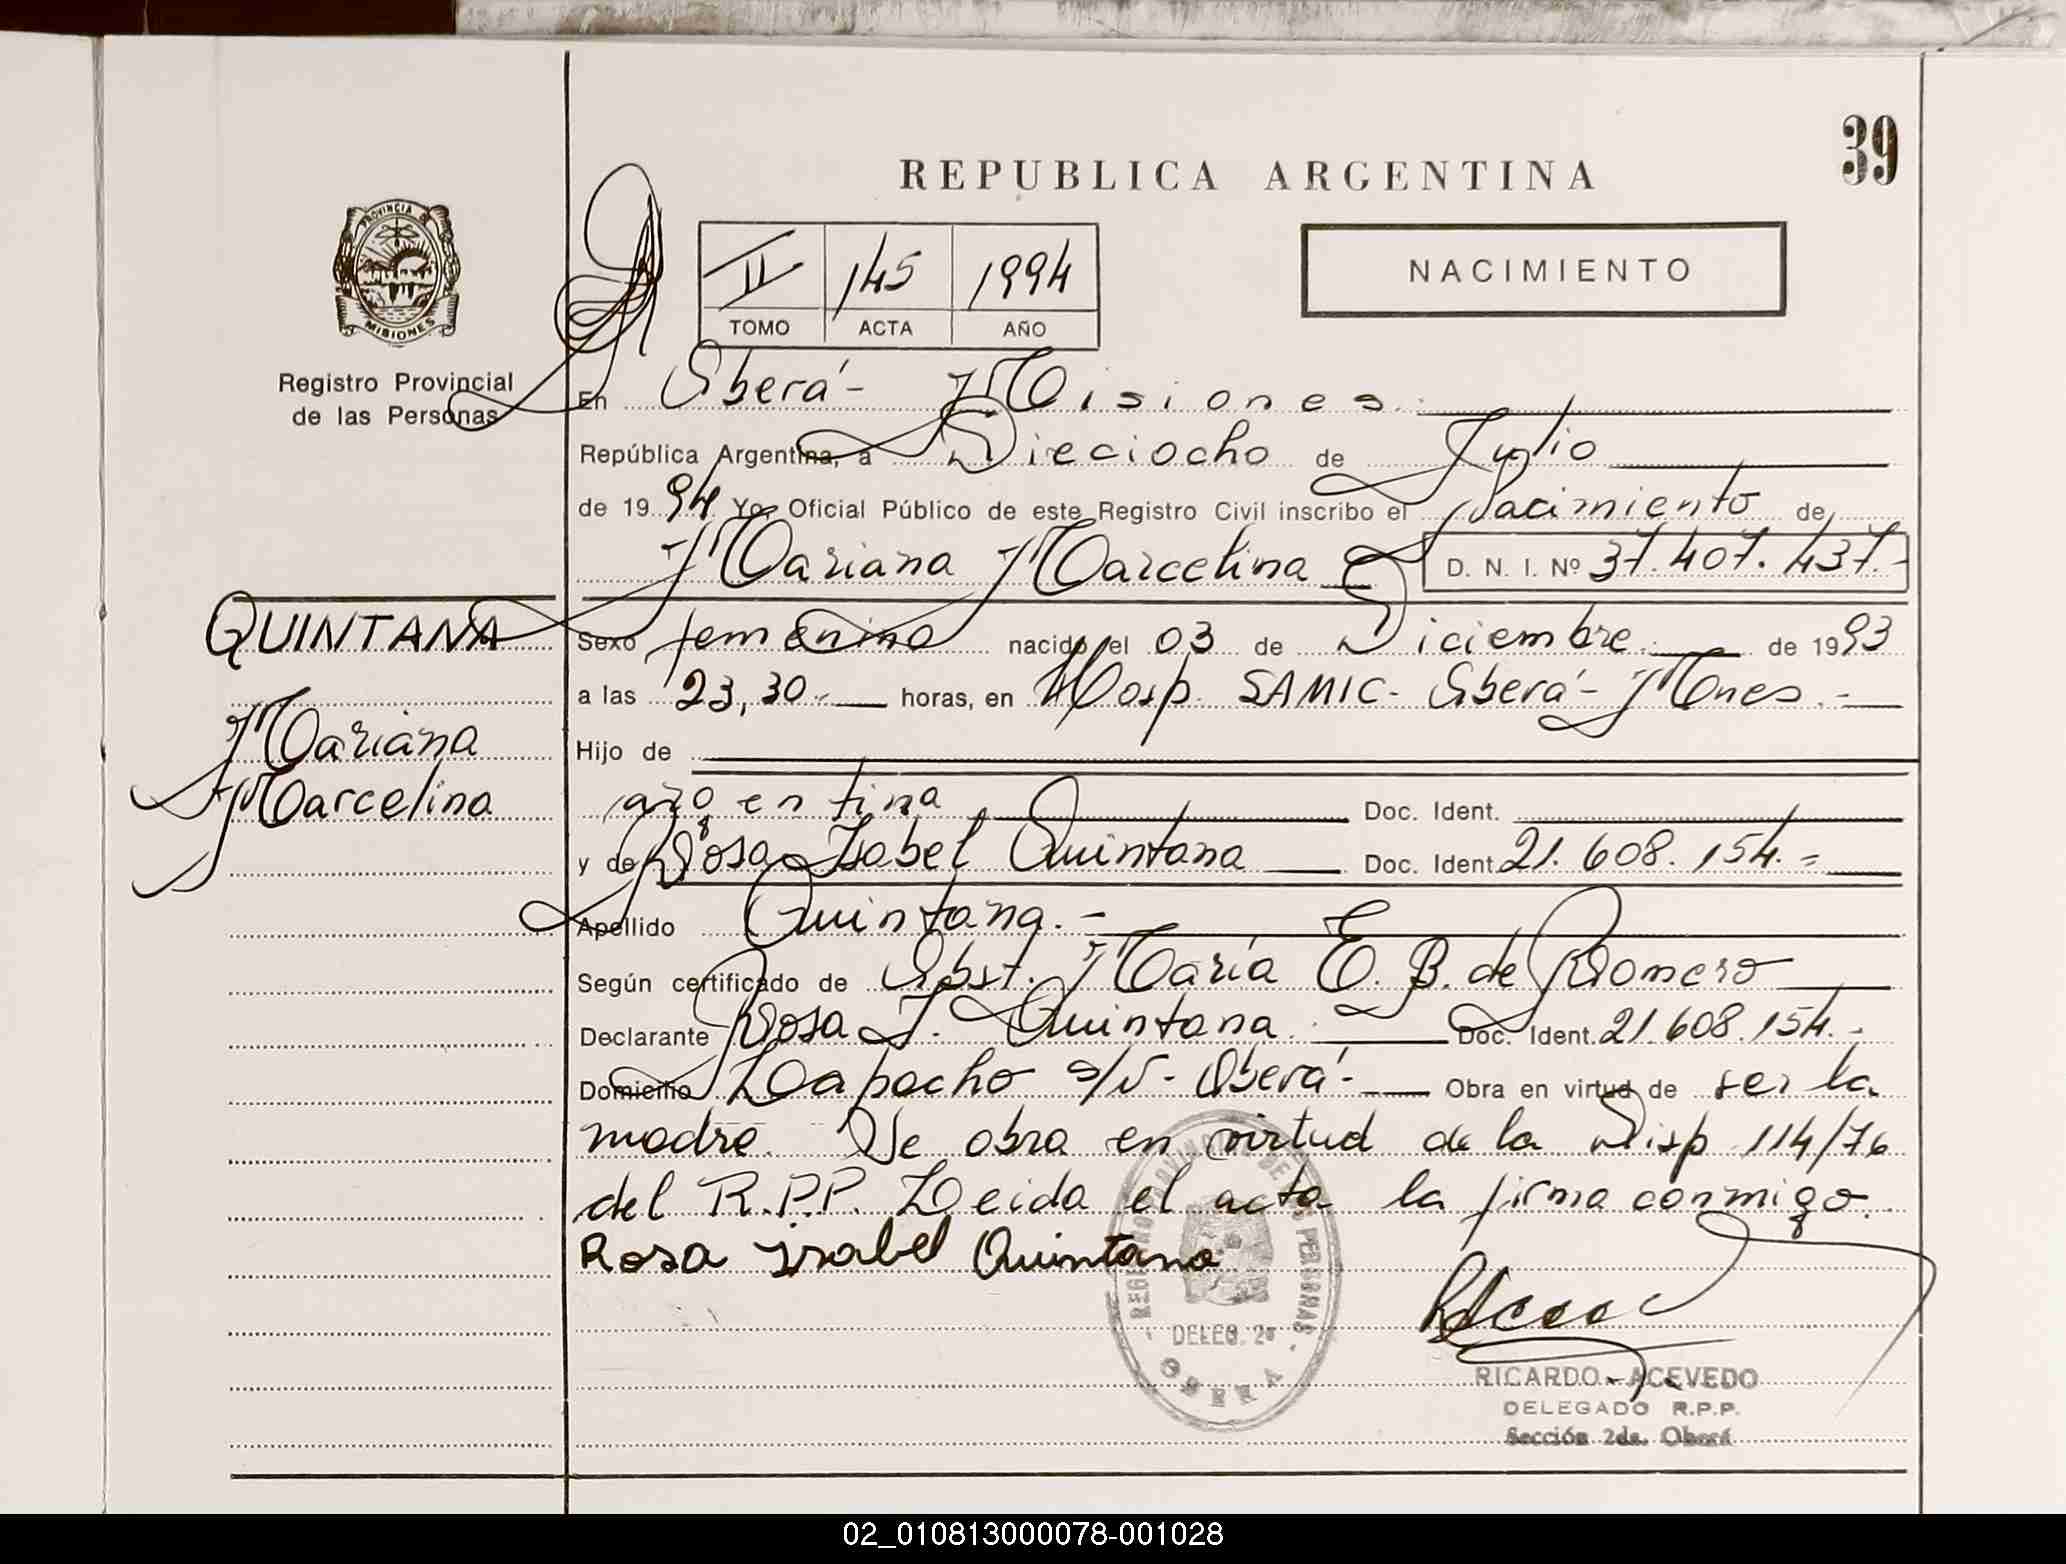 39
REPUBLICA ARGENTINA
PROVINCIA DE
MISIONES
Registro Provincial
de las Personas
II 145 1994
TOMO ACTA AÑO
NACIMIENTO
En Oberá - Misiones.
República Argentina, a Dieciocho de Julio
de 1994 Yo, Oficial Público de este Registro Civil inscribo el Nacimiento de
Mariana Marcelina D. N. I. Nº 37.407.437.-
QUINTANA
Mariana
Marcelina
Sexo femenino nacido el 03 de Diciembre. de 1993
a las 23,30.- horas, en Hosp. SAMIC- Oberá- Mnes.-
Hijo de
argentina Doc. Ident.
y de Rosa Isabel Quintana Doc. Ident. 21.608.154.=
Apellido Quintana.-
Según certificado de Obst. María E. B. de Romero
Declarante Rosa I. Quintana. Doc. Ident. 21.608.154.-
Domicilio Lapacho s/N- Oberá- Obra en virtud de ser la
madre. Se obra en virtud de la Disp 114/76
del R.P.P. Leida el acta la firma conmigo.
Rosa Isabel Quintana
REGISTRO PROVINCIAL DE LAS PERSONAS
DELEG. 2ª
OBERA
RICARDO ACEVEDO
DELEGADO R.P.P.
Sección 2da. Oberá
02_010813000078-001028